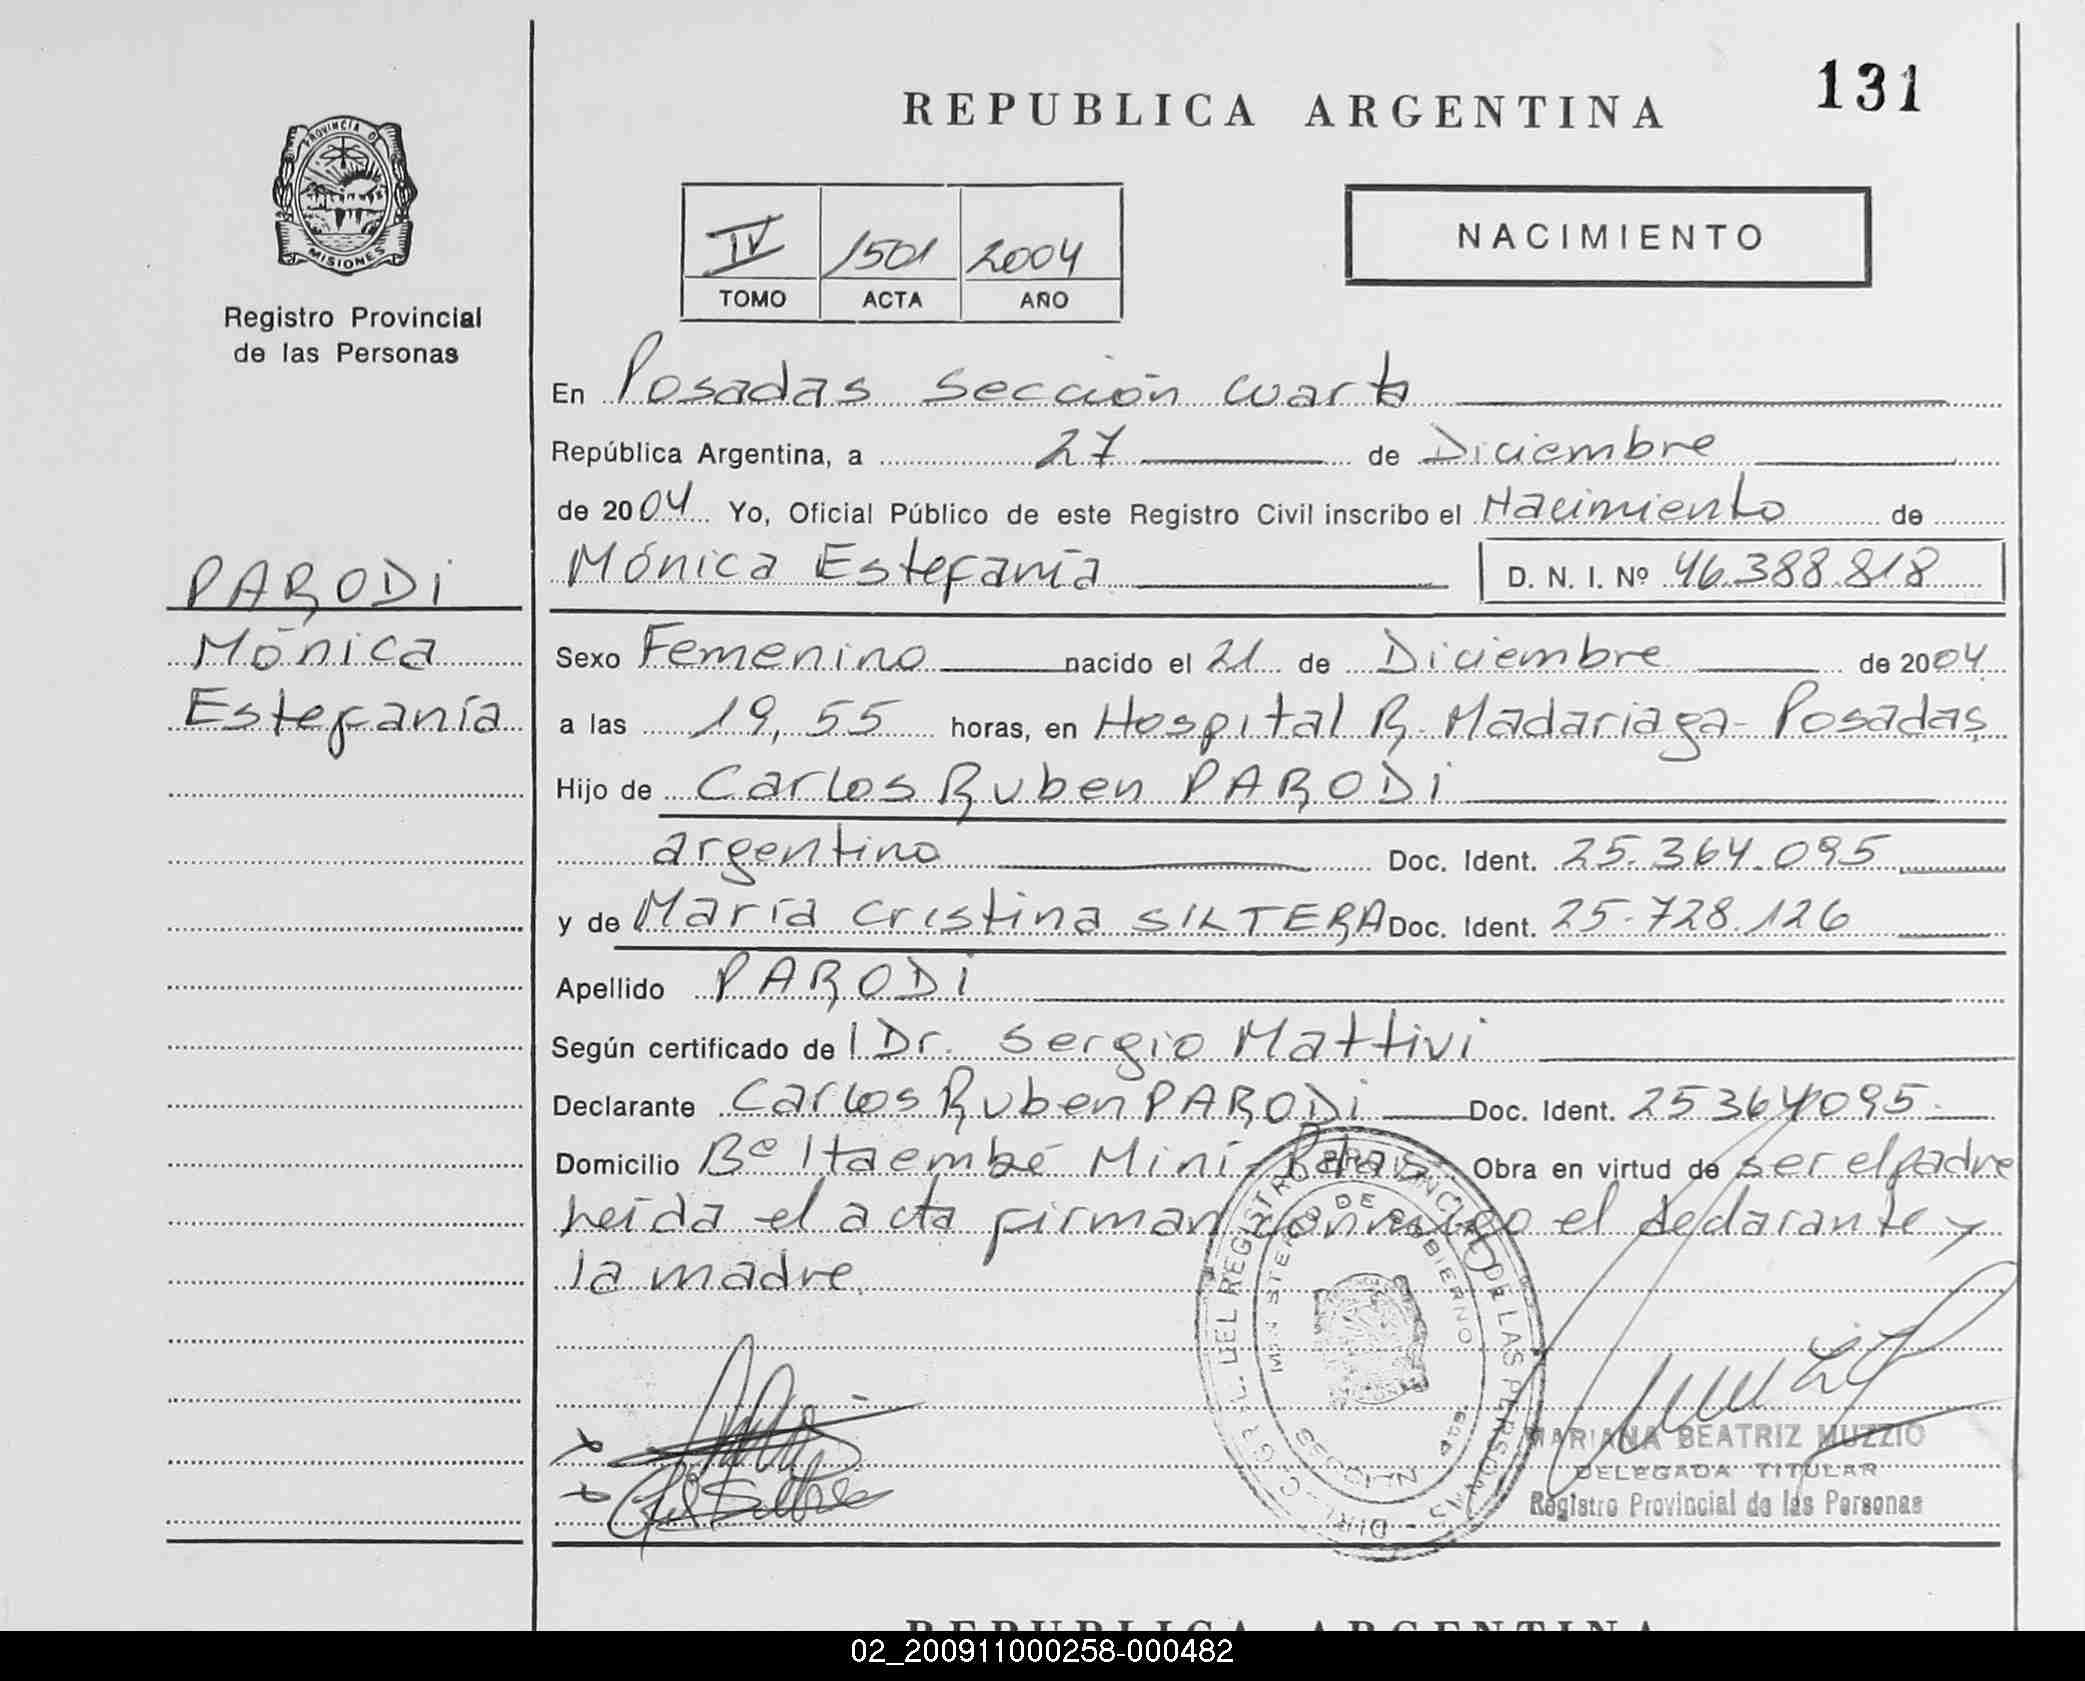 REPUBLICA ARGENTINA
131
PROVINCIA D
MISIONES
Registro Provincial
de las Personas
IV 1501 2004
TOMO ACTA AÑO
NACIMIENTO
En Posadas Sección Cuarta
República Argentina, a 27 de Diciembre
de 2004 Yo, Oficial Público de este Registro Civil inscribo el Nacimiento de
Mónica Estefanía D. N. I. Nº 46.388.818
PARODI
Mónica
Estefanía
Sexo Femenino nacido el 21 de Diciembre de 2004
a las 19,55 horas, en Hospital R. Madariaga - Posadas
Hijo de Carlos Ruben PARODI
argentino Doc. Ident. 25.364.095
y de María Cristina SILTERA Doc. Ident. 25.728.126
Apellido PARODI
Según certificado del Dr. Sergio Mattivi
Declarante Carlos Ruben PARODI Doc. Ident. 25364095
Domicilio Bº Itaembé Miní - Pdas Obra en virtud de ser el padre
Leída el acta firman conmigo el declarante y
la madre.
DIR. GRAL. DEL REGISTRO PROVINCIAL DE LAS PERSONAS
MINISTERIO DE GOBIERNO
MARIANA BEATRIZ MUZZIO
DELEGADA TITULAR
Registro Provincial de las Personas
REPUBLICA ARGENTINA
02_200911000258-000482